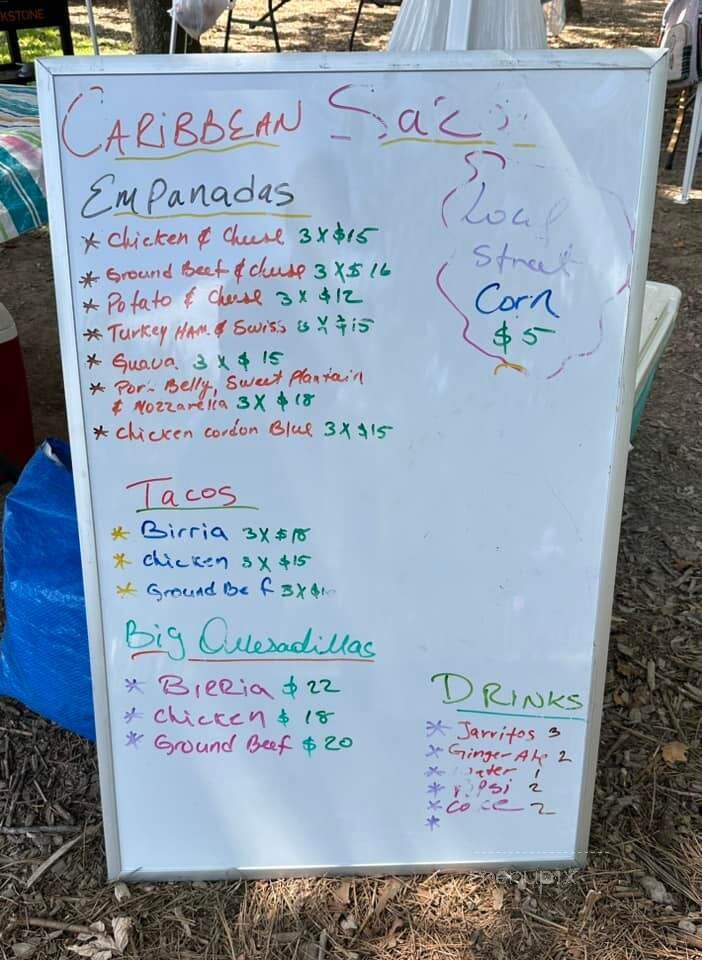 KSTONE
CARiBBEAN
EmPanadas
* Chicken & Cheese 3 X $15
* Ground Beef & cheese 3 X $ 16
* Potato & Cheese 3 X $12
* Turkey HAM & Swiss 3 X $15
* Guava 3 X $ 15
* Belly, Sweet Plantain
& Mozzarella 3 X $ 18
* Chicken cordon Blue 3 X $15
Street
Corn
$5
Tacos
* Birria 3 X $18
* chicken 3 X $15
* Ground 3 X
Big Quesadillas
* BIRRIA $ 22
* chicken $ 18
* Ground Beef $ 20
DRINKS
* Jarritos 3
* Ginger Ale 2
* 1
* 2
* 2
*